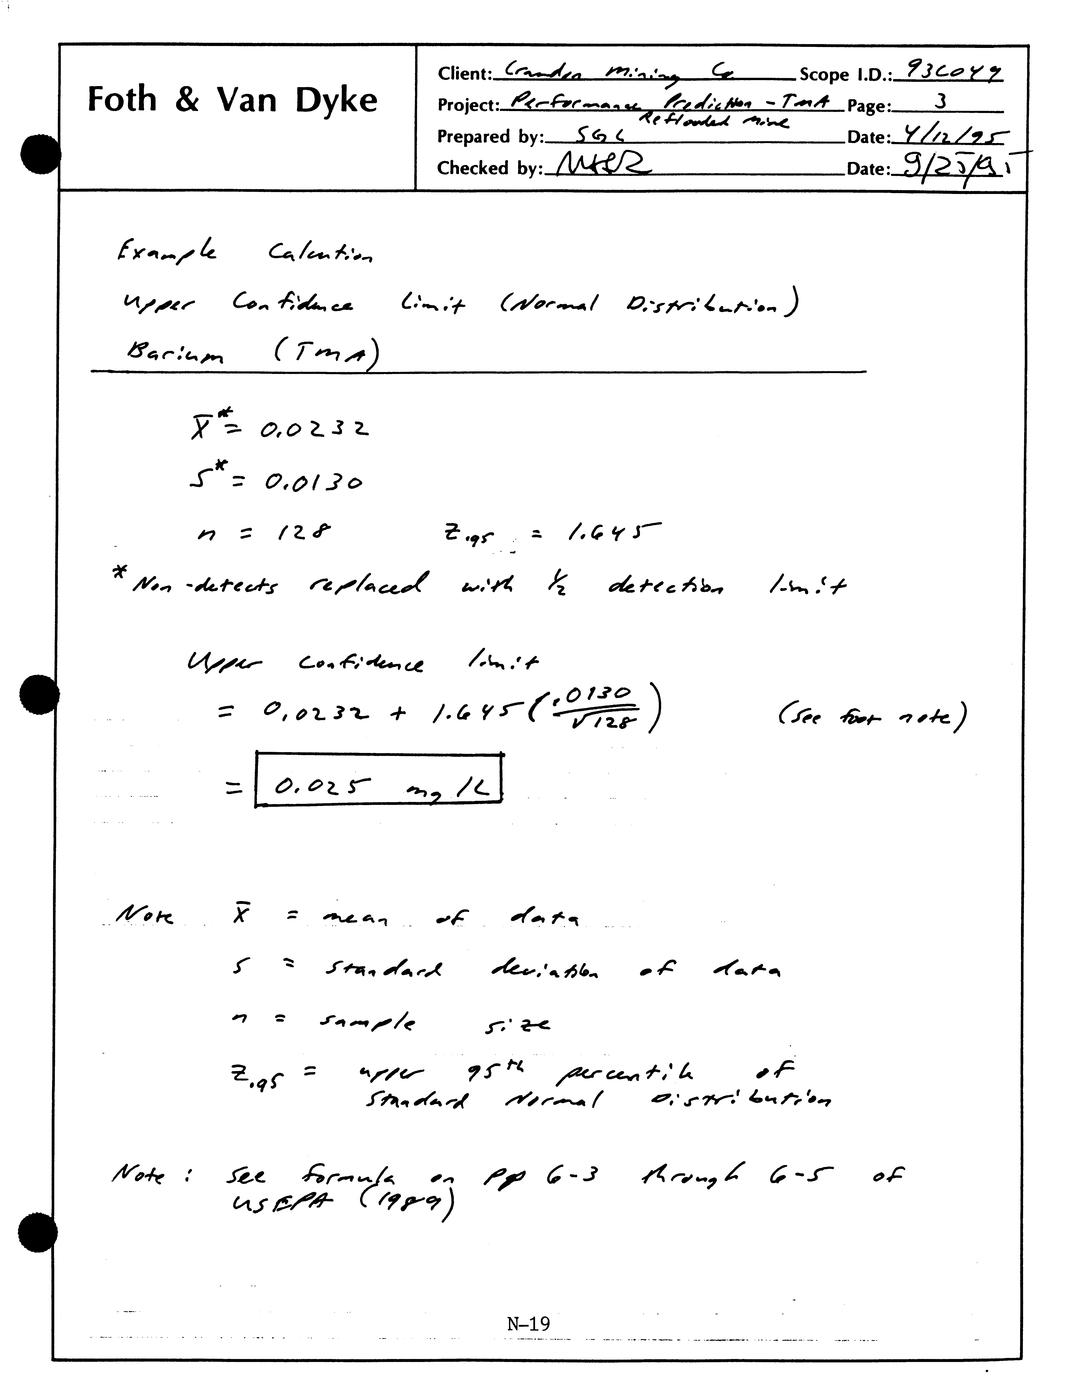 Foth & Van Dyke
Client: Crandon Mining Co Scope I.D.: 93C049
Project: Performance Prediction - TMA Page: 3
Reflooded Mine
Prepared by: SGL Date: 4/12/95
Checked by: Date: 9/25/95
Example Calcution
Upper Confidence Limit (Normal Distribution)
Barium (TMA)
X̄* = 0.0232
S* = 0.0130
n = 128 Z.95 = 1.645
* Non-detects replaced with ½ detection limit
Upper Confidence limit
= 0.0232 + 1.645 (.0130/√128) (see foot note)
= 0.025 mg/L
Note X̄ = mean of data
S = standard deviation of data
n = sample size
Z.95 = upper 95th percentile of
Standard Normal Distribution
Note: See formula on pp 6-3 through 6-5 of
USEPA (1989)
N-19